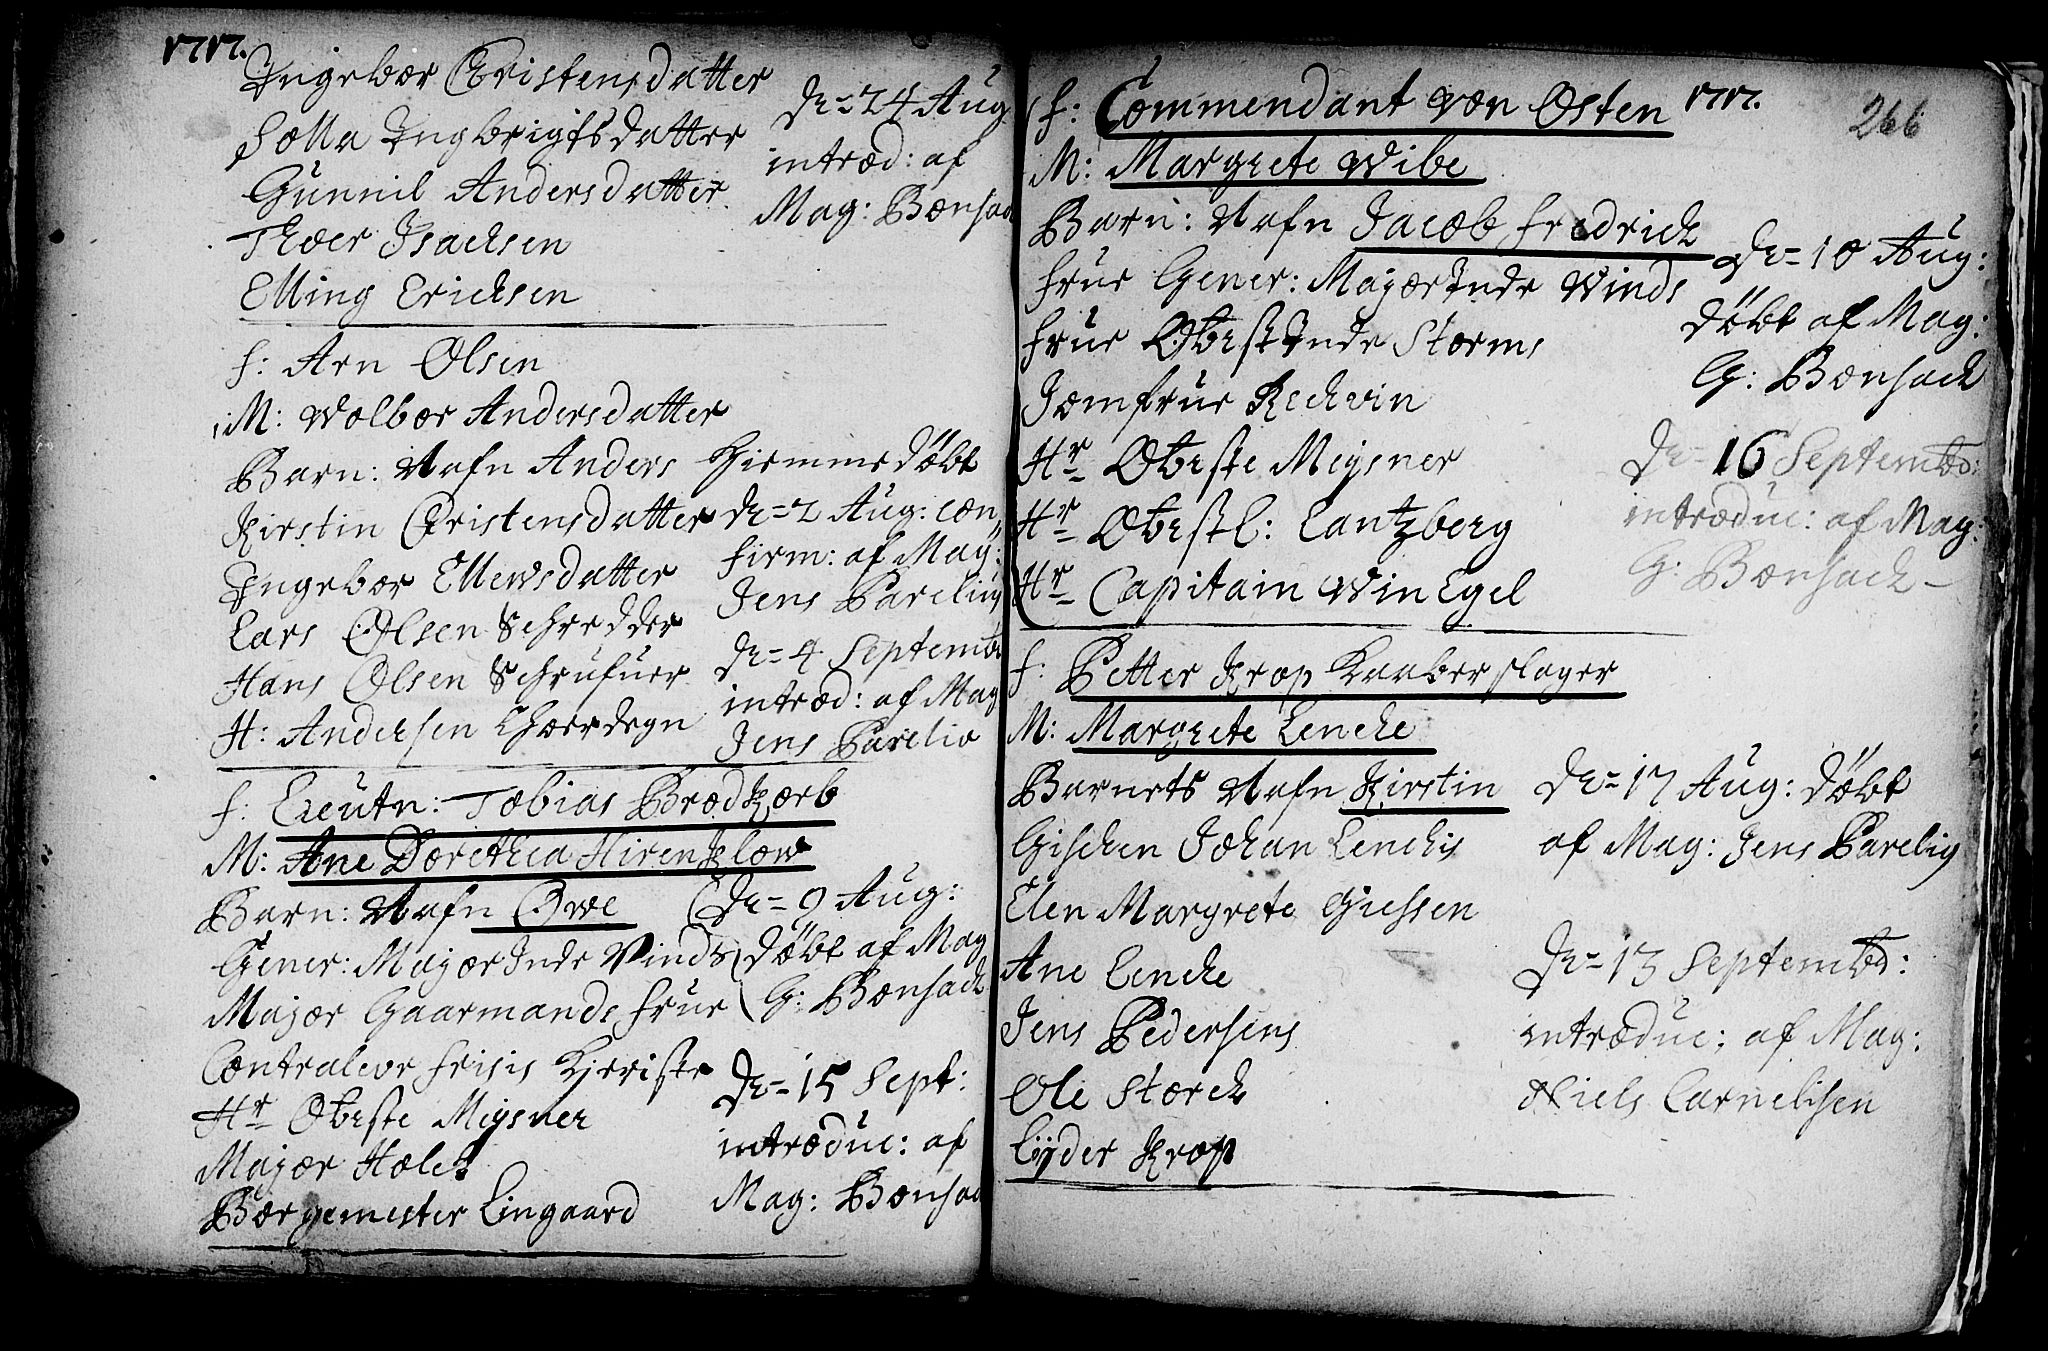 1717.
Ingebor Christensdatter
Solla Ingbrigtsdatter
Gunnil Andersdatter
Thoer Isachsen
Elling Erichsen
D: 24 Aug
introd: af
Mag: Bonsac
f: Arn Olsen
M: Wolbor Andersdatter
Barn: Nafn Anders
Kirstin Christensdatter
Ingebor Ellewsdatter
Lars Olsen Schredder
Hans Olsen Schrufuer
H: Andersen Choerdegn
Hiemme döbt
D: 2 Aug: con
firm: af Mag:
Jens Parelius
D: 4 Septemb
introd: af Mag
Jens Parelio
f: Lieutn: Tobias Brodkorb
M: Ane Dorethea Hirenklow
Barn: Nafn Owe
Gener: MajorInde Vinds
Major Gaarmands frue
Contraleur frisis Kieriste
Hr Oberste Meysner
Major Holst
Borgemester Lingaard
D: 9 Aug:
döbt af Mag
G: Bonsach
D: 15 Sept:
introduc: af
Mag: Bonsac
f: Commendant von Osten 1717.
266
M: Margrete Wibe
Barn: Nafn Jacob fredrich
frue Gener: MajorInde Winds
frue OberstInde Storms
Jomfrue Reckvin
Hr Oberste Meysner
Hr Oberstl: Lantzberg
Hr Capitain WinEgel
D: 10 Aug:
döbt af Mag:
G: Bonsach
D: 16 Septembr:
introduc: af Mag:
G: Bonsach
f: Petter Krop Kaaberslager
M: Margrete Lencke
Barnets Nafn Kirstin
Gischen Johan Lenckis
Elen Margrete Giessen
Ane Lencke
Jens Pedersens
Ole Storch
Lyder Krop
D: 17 Aug: döbt
af Mag: Jens Parelig
D: 13 Septembr:
introduc: af Mag:
Niels Cornelisen